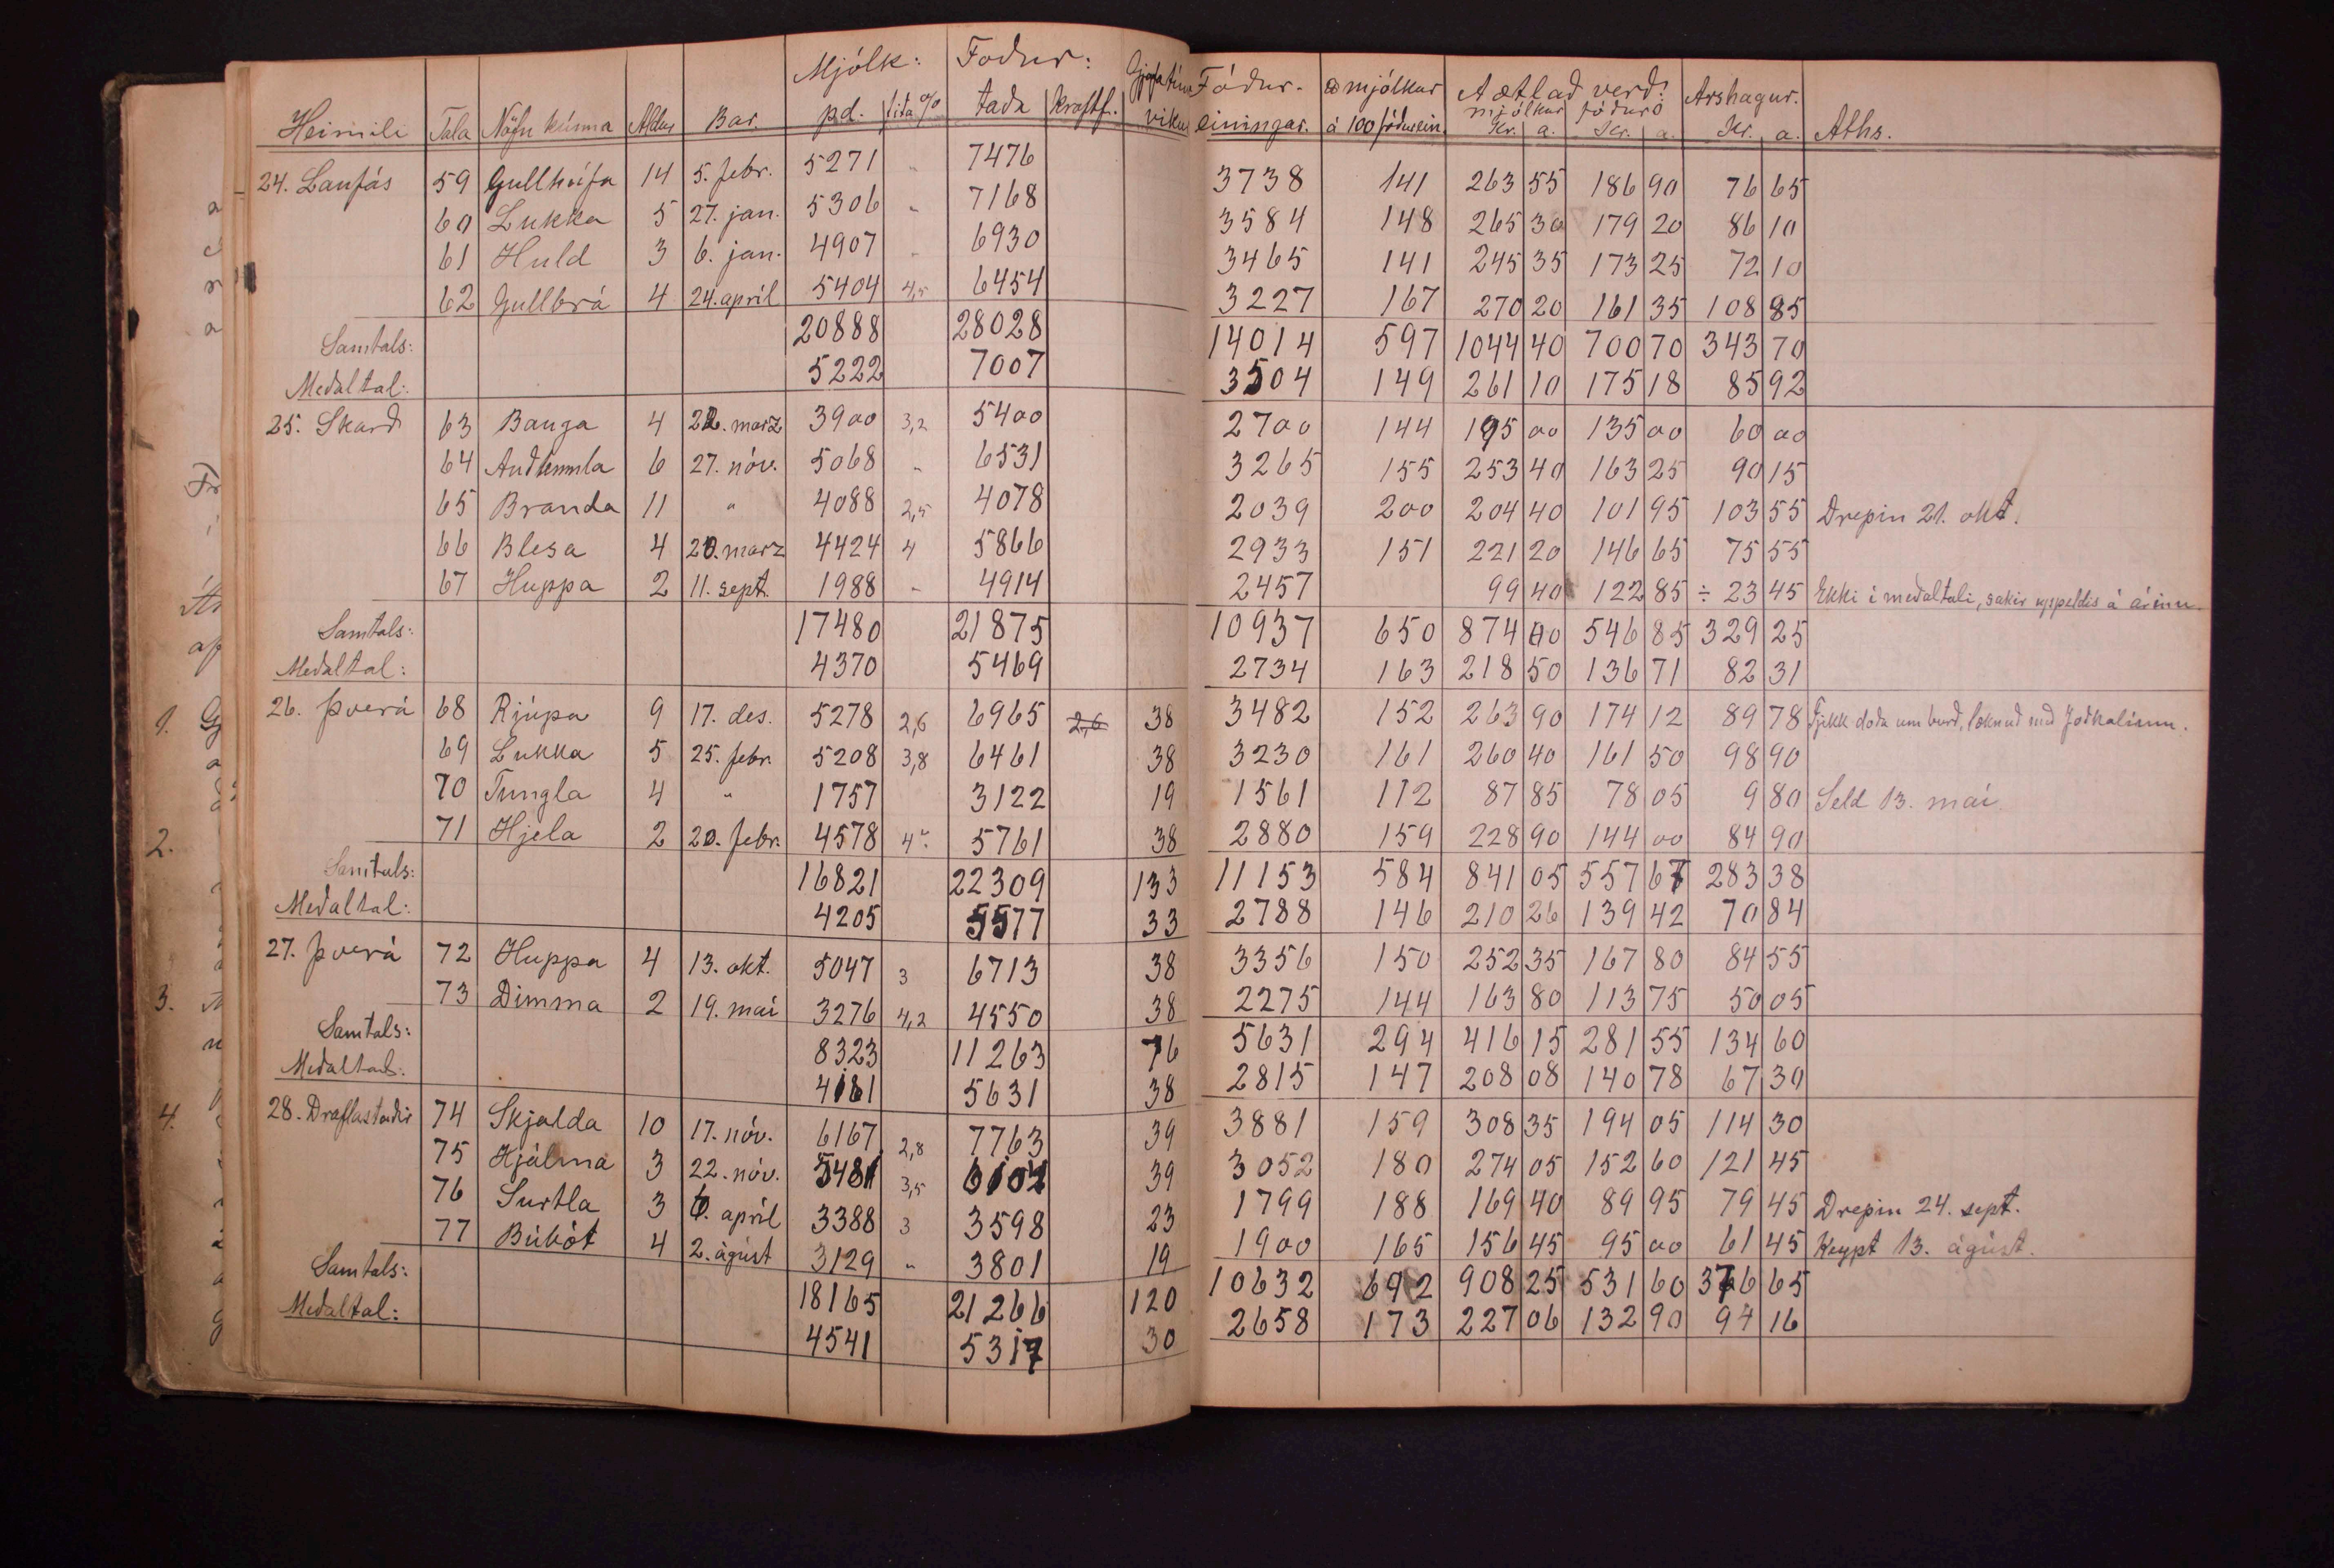 Mjólk: Foður: Gjafatími Fóður- ® mjólkur Áætlað verð: Arshagur.
Heimili Tala Nöfn kúnna Aldur Bar. pd. fita % taða kraftf. vikur einingar. á 100 fóðurein. mjólkur Kr. a. fóðurs Kr. a. Kr. a. Aths.
24. Laufás 59 Gullhúfa 14 5. febr. 5271 " 7476 3738 141 263 55 186 90 76 65
60 Lukka 5 27. jan. 5306 " 7168 3584 148 265 30 179 20 86 10
61 Huld 3 6. jan. 4907 " 6930 3465 141 245 35 173 25 72 10
62 Gullbrá 4 24. apríl 5404 4,5 6454 3227 167 270 20 161 35 108 85
Samtals: 20888 28028 14014 597 1044 40 700 70 343 70
Meðaltal: 5222 7007 3504 149 261 10 175 18 85 92
25. Skarð 63 Bauga 4 22. marz 3900 3,2 5400 2700 144 195 00 135 00 60 00
64 Auðhumla 6 27. nóv. 5068 " 6531 3265 155 253 40 163 25 90 15
65 Branda 11 " 4088 2,5 4078 2039 200 204 40 101 95 103 55 Drepin 21. okt.
66 Blesa 4 20. marz 4424 4 5866 2933 151 221 20 146 65 75 55
67 Huppa 2 11. sept. 1988 " 4914 2457 99 40 122 85 ÷ 23 45 Ekki í meðaltali, sakir uppeldis á árinu.
Samtals: 17480 21875 10937 650 874 00 546 85 329 25
Meðaltal: 4370 5469 2734 163 218 50 136 71 82 31
26. Þverá 68 Rjúpa 9 17. des. 5278 2,6 6965 2,6 38 3482 152 263 90 174 12 89 78 Fjekk doða um burð, læknuð með Joðkalíum.
69 Lukka 5 25. febr. 5208 3,8 6461 38 3230 161 260 40 161 50 98 90
70 Tungla 4 " 1757 3122 19 1561 112 87 85 78 05 9 80 Seld 13. maí
71 Hjela 2 20. febr. 4578 4 " 5761 38 2880 159 228 90 144 00 84 90
Samtals: 16821 22309 133 11153 584 841 05 557 67 283 38
Meðaltal: 4205 5577 33 2788 146 210 26 139 42 70 84
27. Þverá 72 Huppa 4 13. okt. 5047 3 6713 38 3356 150 252 35 167 80 84 55
73 Dimma 2 19. maí 3276 4,2 4550 38 2275 144 163 80 113 75 50 05
Samtals: 8323 11263 76 5631 294 416 15 281 55 134 60
Meðaltal: 4161 5631 38 2815 147 208 08 140 78 67 30
28. Draflastaðir 74 Skjalda 10 17. nóv. 6167 2,8 7763 39 3881 159 308 35 194 05 114 30
75 Hjálma 3 22. nóv. 5481 3,5 6104 39 3052 180 274 05 152 60 121 45
76 Surtla 3 6. apríl 3388 3 3598 23 1799 188 169 40 89 95 79 45 Drepin 24. sept.
77 Búbót 4 2. ágúst 3129 " 3801 19 1900 165 156 45 95 00 61 45 Keypt 13. ágúst.
Samtals: 18165 21266 120 10632 692 908 25 531 60 376 65
Meðaltal: 4541 5317 30 2658 173 227 06 132 90 94 16